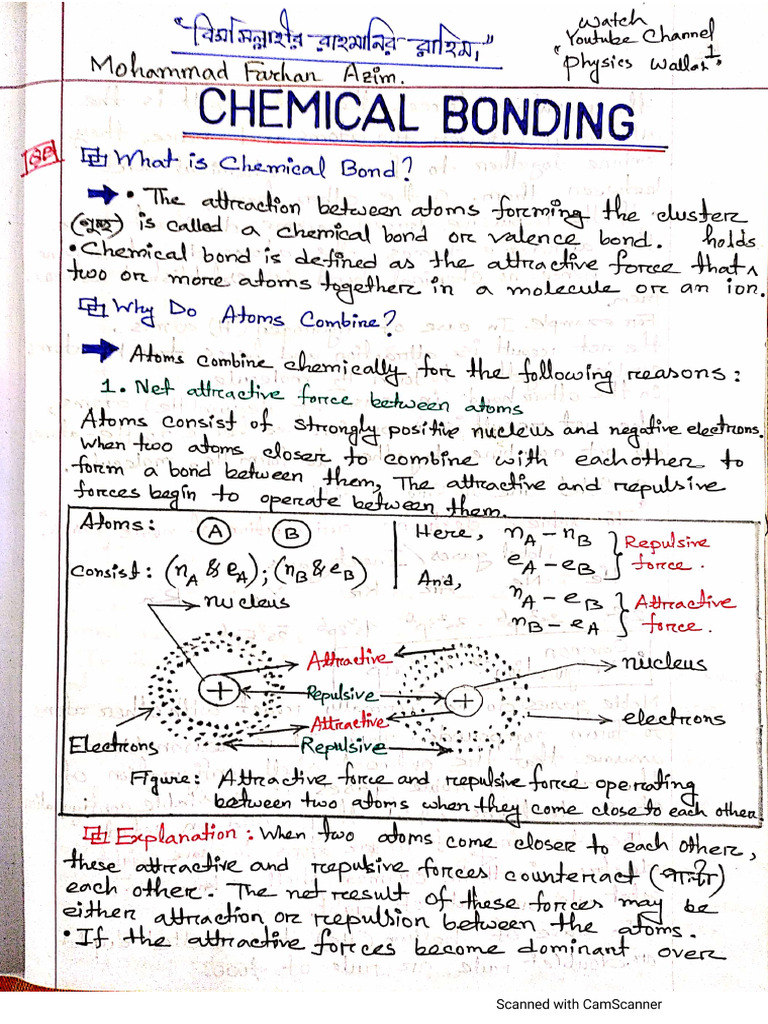 "বিসমিল্লাহীর রাহমানির রাহিম।"
Watch
Youtube Channel
"Physics Wallah"
Mohammad Farhan Azim.
CHEMICAL BONDING
What is Chemical Bond?
• The attraction between atoms forming the cluster
(গুচ্ছ) is called a chemical bond or valence bond.
• Chemical bond is defined as the attractive force that holds
two or more atoms together in a molecule or an ion.
Why Do Atoms Combine?
Atoms combine chemically for the following reasons:
1. Net attractive force between atoms
Atoms consist of strongly positive nucleus and negative electrons.
When two atoms closer to combine with eachother to
form a bond between them, The attractive and repulsive
forces begin to operate between them.
Atoms: A B
Consist: (n_A & e_A); (n_B & e_B)
Here, n_A - n_B
e_A - e_B } Repulsive force.
And, n_A - e_B
n_B - e_A } Attractive force.
nucleus
Attractive
nucleus
+ Repulsive +
Attractive
electrons
Electrons
Repulsive
Figure: Attractive force and repulsive force operating
between two atoms when they come close to each other
Explanation: When two atoms come closer to each other,
these attractive and repulsive forces counteract
each other. The net result of these forces may be
either attraction or repulsion between the atoms.
• If the attractive forces become dominant over
Scanned with CamScanner